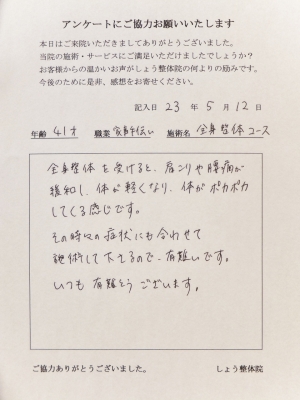 アンケートにご協力お願いいたします
本日はご来院いただきましてありがとうございました。
当院の施術・サービスにご満足いただけましたでしょうか？
お客様からの温かいお声がしょう整体院の何よりの励みです。
今後のために是非、感想をお寄せください。
記入日 23 年 5 月 12 日
年齢 41才 職業 家事手伝い 施術名 全身整体コース
全身整体を受けると、肩こりや腰痛が
緩和し、体が軽くなり、体がポカポカ
してくる感じです。
その時々の症状にも合わせて
施術して下さるので、有難いです。
いつも有難うございます。
ご協力ありがとうございました。 しょう整体院